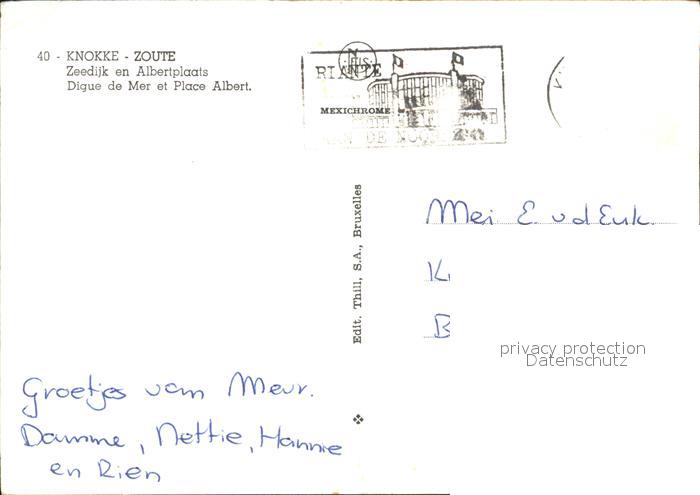 40 - KNOKKE - ZOUTE
Zeedijk en Albertplaats
Digue de Mer et Place Albert.
NELS
RIANTE
MEXICHROME
AAN DE NOORDZEE
Edit. Thill, S.A., Bruxelles
Mej E vd Enk
K
B
privacy protection
Datenschutz
Groetjes van Mevr.
Damme, Nettie, Hannie
en Rien